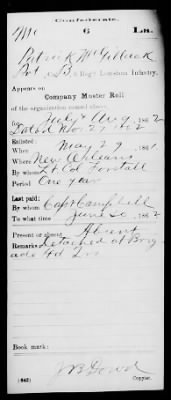 Confederate.
Mc 6 La.
Patrick
Pvt, Co. B, 6 Reg't Louisiana Infantry.
Appears on
Company Muster Roll
of the organization named above,
for July & Aug, 1862
Dated Nov. 27 1862
Enlisted:
When May 29, 1861.
Where New Orleans
By whom Lt. Col Forstall
Period One year
Last paid:
By whom Capt Campbell
To what time June 30, 1862
Present or absent Absent
Remarks: detached at Brig
ade Hd Qrs
Book mark:
J W B Dowd
(642) Copyist.